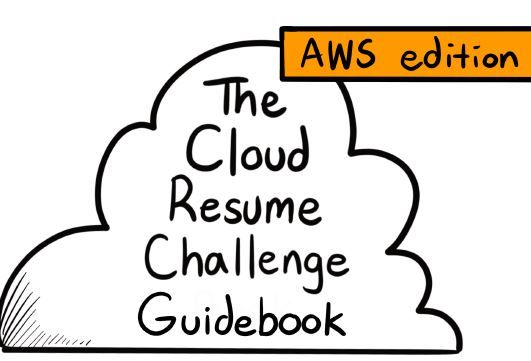 AWS edition
The
Cloud
Resume
Challenge
Guidebook